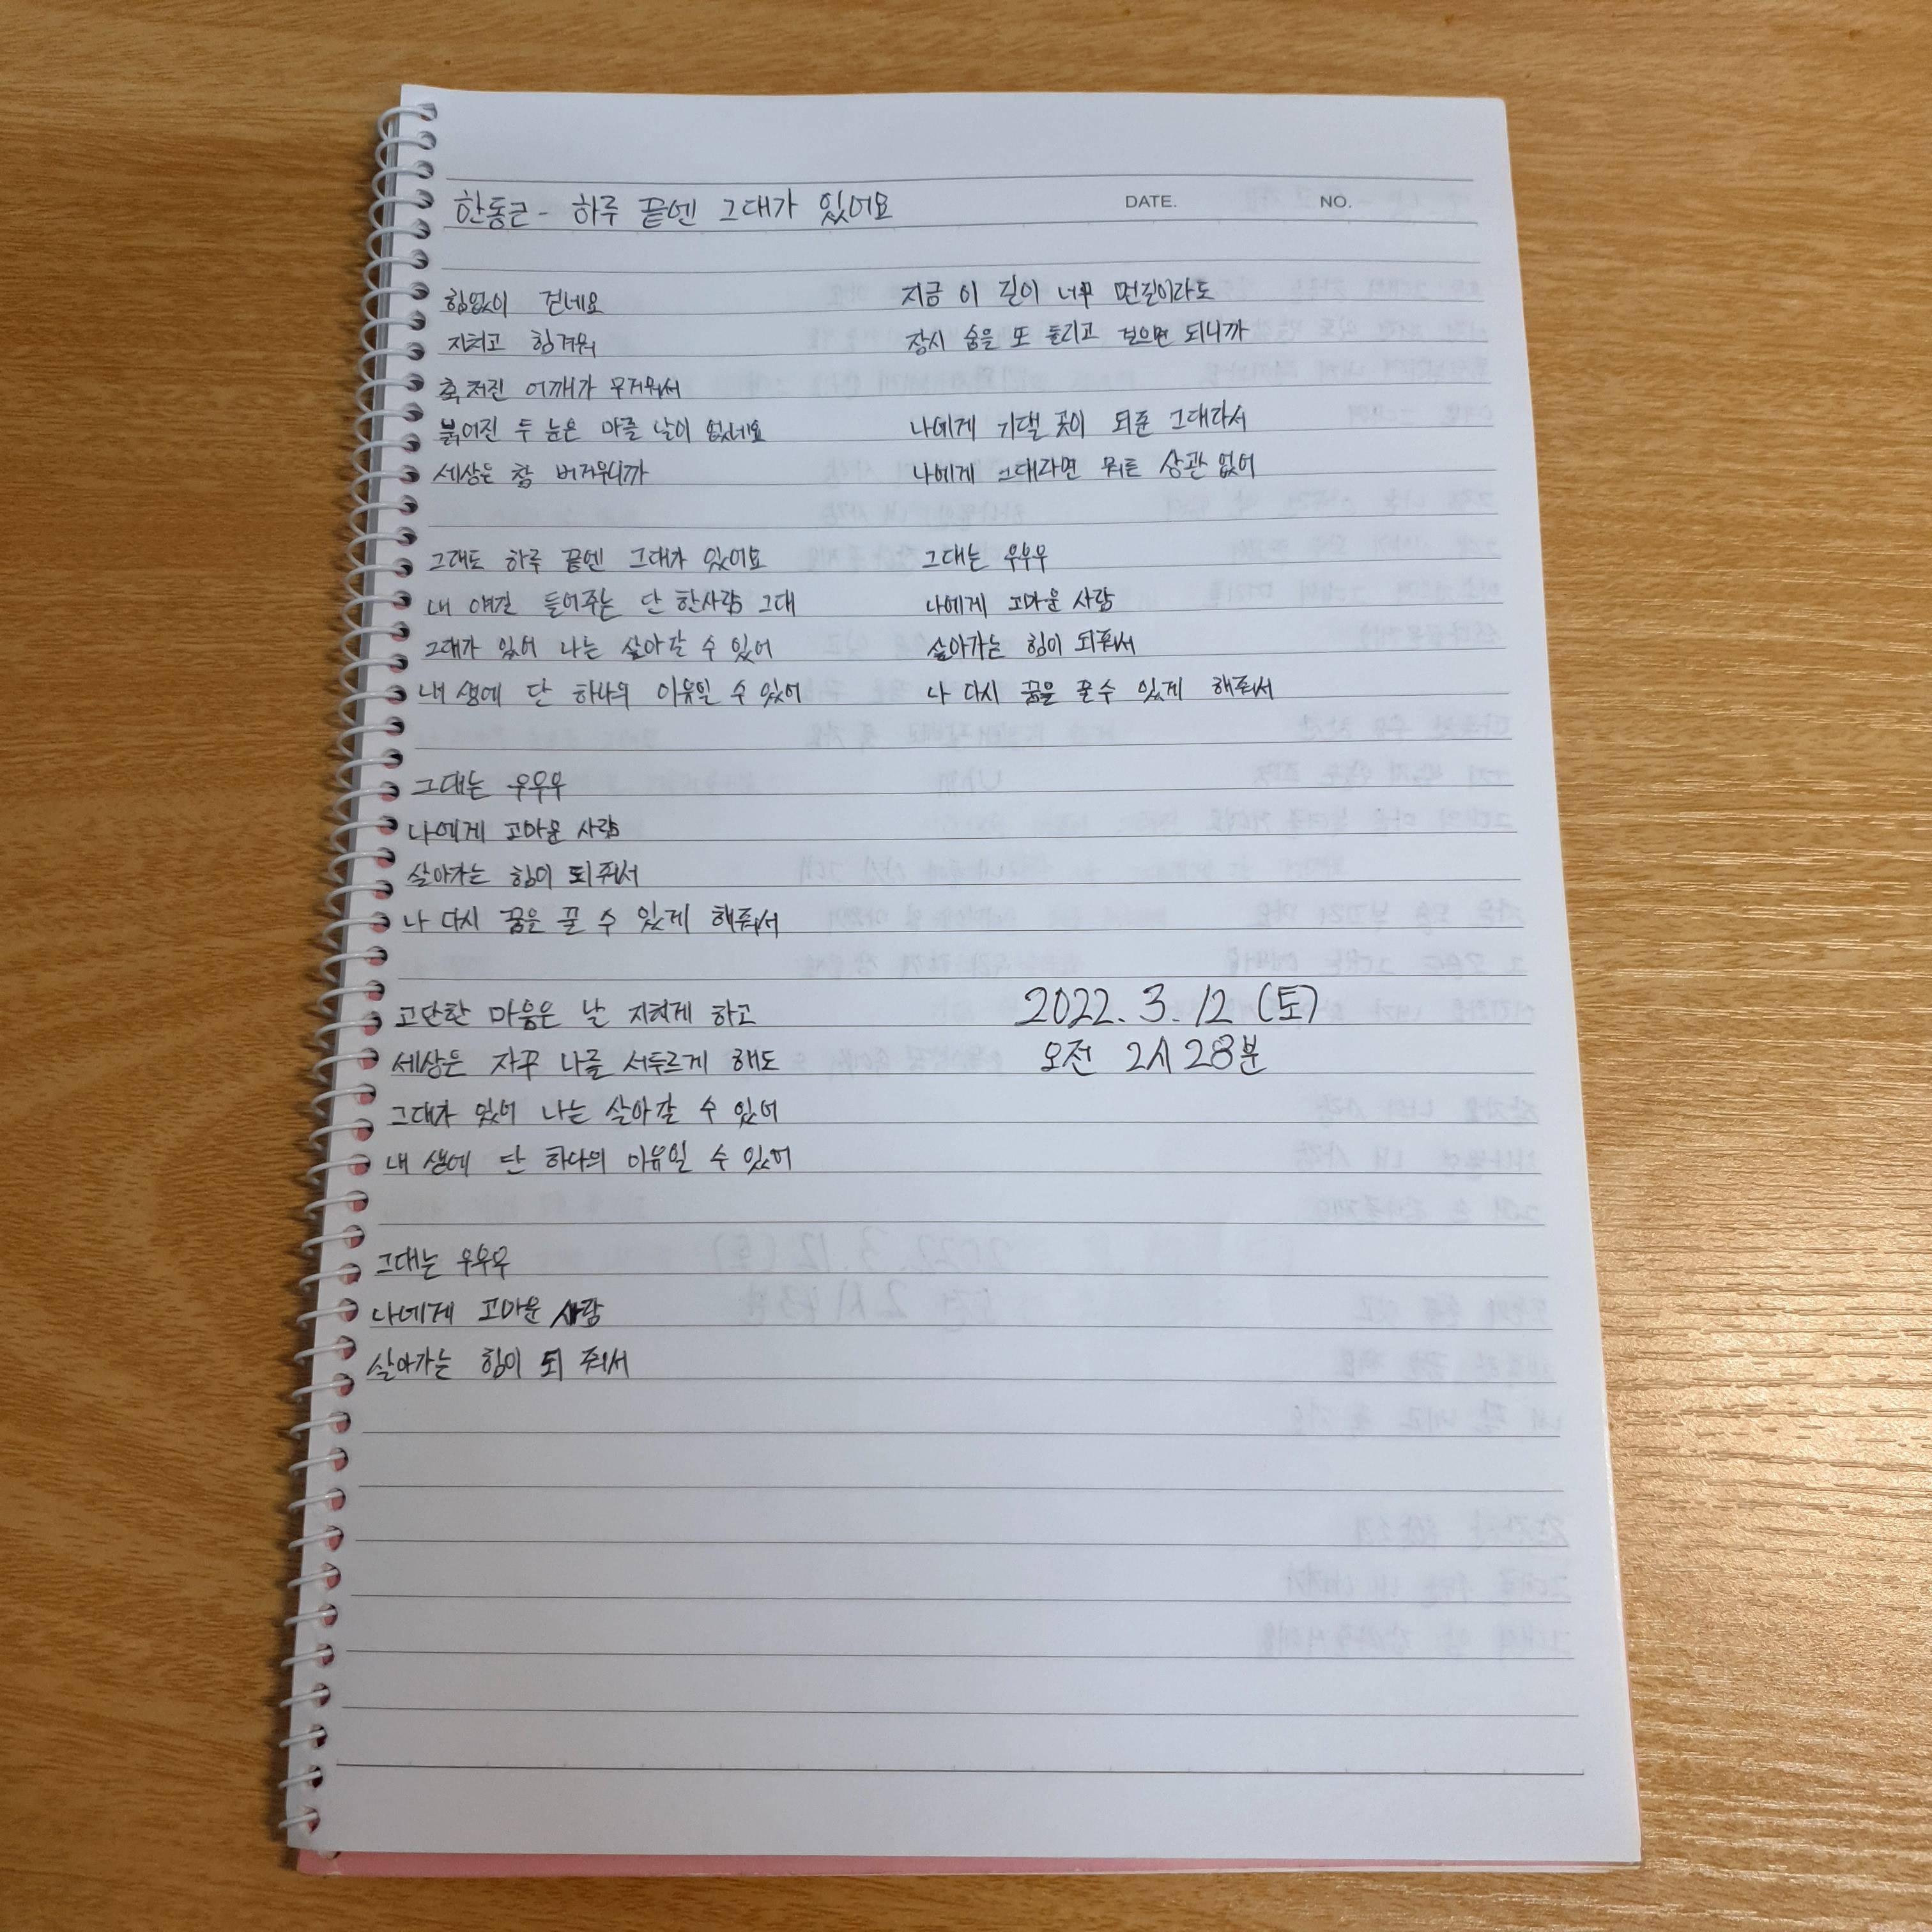 한동근 - 하루 끝엔 그대가 있어요
DATE. NO.
힘없이 걷네요
지치고 힘겨워
축 처진 어깨가 무거워서
붉어진 두 눈은 마를 날이 없네요
세상은 참 버거우니까
그래도 하루 끝엔 그대가 있어요
내 얘길 들어주는 단 한사람 그대
그대가 있어 나는 살아갈 수 있어
내 생에 단 하나의 이유일 수 있어
그대는 우우우
나에게 고마운 사람
살아가는 힘이 되줘서
나 다시 꿈을 꿀 수 있게 해줘서
고단한 마음은 날 지치게 하고
세상은 자꾸 나를 서두르게 해도
그대가 있어 나는 살아갈 수 있어
내 생에 단 하나의 이유일 수 있어
그대는 우우우
나에게 고마운 사람
살아가는 힘이 되 줘서
지금 이 길이 너무 먼길이라도
잠시 숨을 또 돌리고 걸으면 되니까
나에게 기댈 곳이 되준 그대라서
나에게 그대라면 뭐든 상관 없어
그대는 우우우
나에게 고마운 사람
살아가는 힘이 되줘서
나 다시 꿈을 꿀수 있게 해줘서
2022. 3. 12 (토)
오전 2시 28분